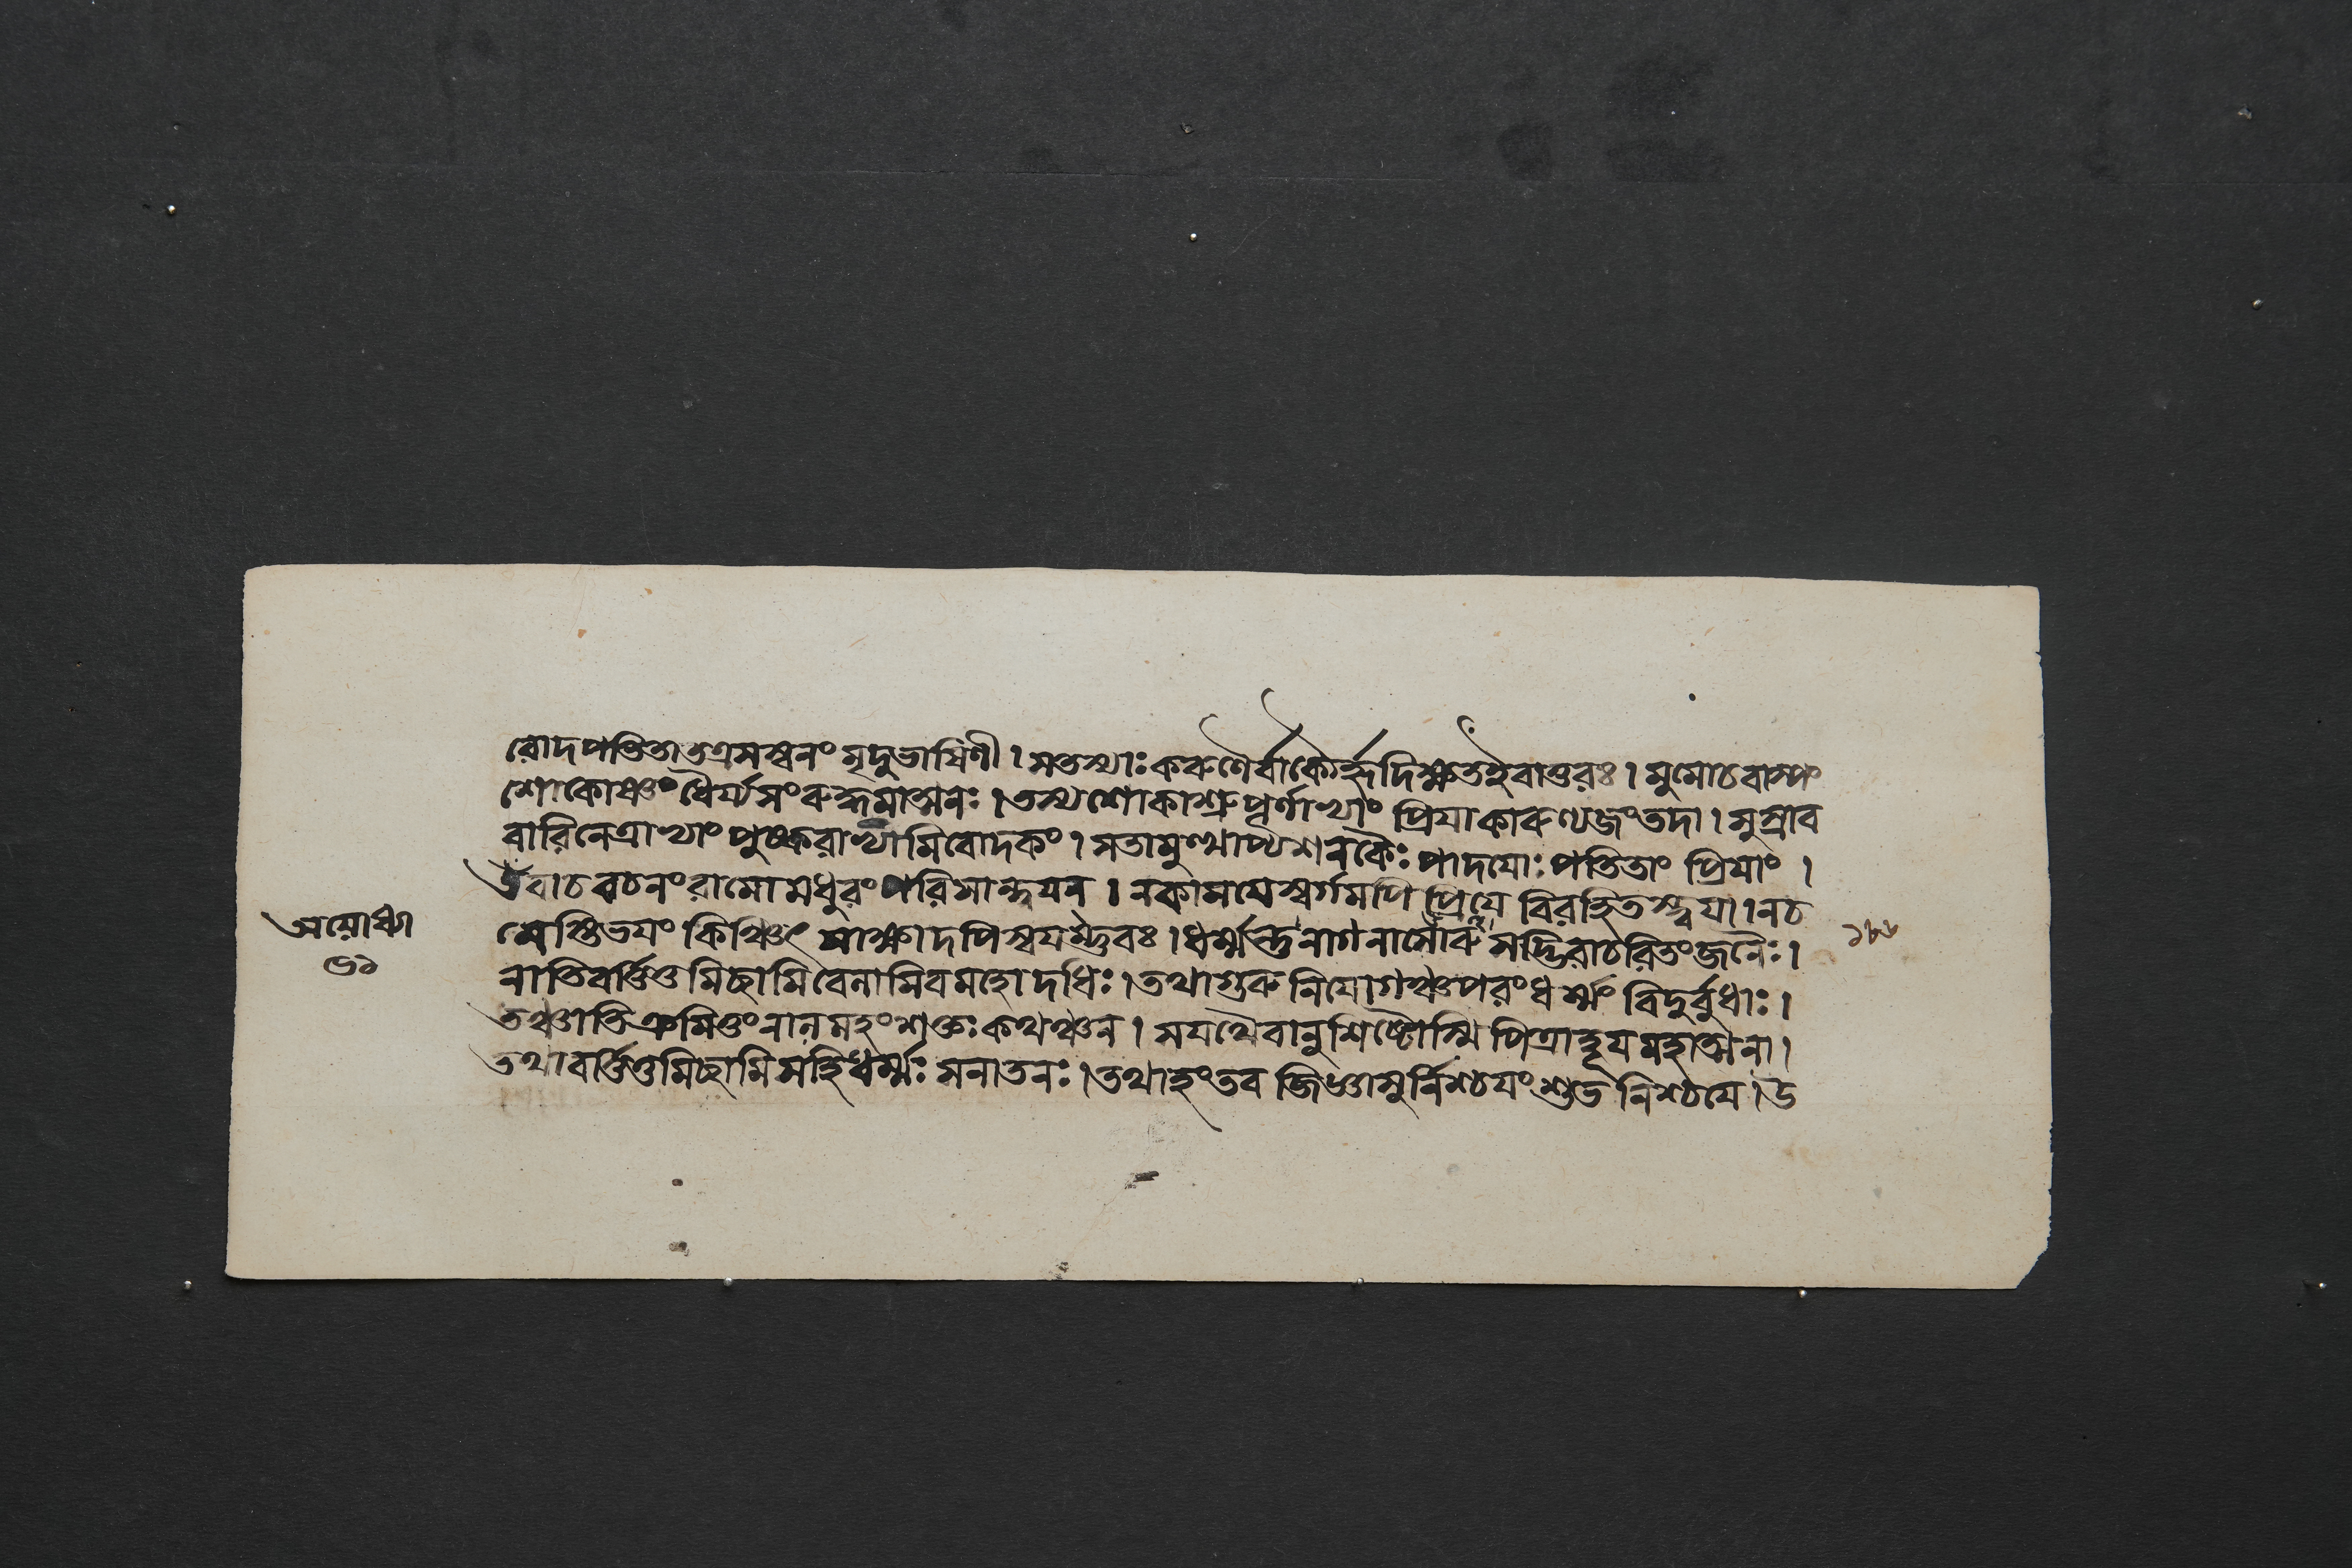 রোদপতিতাতত্রসস্বনং মৃদুভাষিণী। সতস্যাঃ করুণৈর্বাক্যৈর্হৃদিক্ষতইবাতুরঃ। মুমোচবাষ্পং
শোকোষ্ণং ধৈর্য্যসংরুদ্ধমাত্মনঃ। তস্যশোকাশ্রুপূর্ণাভ্যাং প্রিয়াকারুণ্যজংতদা। সুস্রাব
বারিনেত্রাভ্যাং পুষ্করাভ্যামিবোদকং। সতামুত্থাপ্যশনকৈঃ পাদয়োঃ পতিতাং প্রিয়াং।
উবাচ বচনং রামো মধুরং পরিসান্ত্বয়ন। নকাময়েস্বর্গমপি প্রিয়ে বিরহিতস্ত্বয়া। নচ
মেস্তিভয়ং কিঞ্চিৎ সাক্ষাদপিস্বয়ম্ভুবঃ। ধর্ম্মন্তুনাগনাসোরু সদ্ভিরাচরিতং জনৈঃ।
নাতিবর্ত্তিতুমিচ্ছামি বেলামিবমহোদধিঃ। তথাগুরু নিয়োগঞ্চপরং ধর্ম্মং বিদুর্বুধাঃ।
তঞ্চাতিক্রমিতুং নালমহং শক্তঃ কথঞ্চন। সযথৈবানুশিষ্টোস্মি পিত্রাহূয়মহাত্মনা।
তথাবর্ত্তিতুমিচ্ছামি সহিধর্ম্মঃ সনাতনঃ। তথাহং তব জিজ্ঞাসুর্নিশ্চয়ং শুভ নিশ্চয়ে। উ
অযোধ্যা
৬১
১৮৬